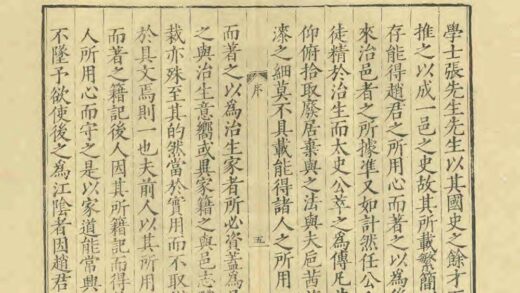 學士張先生先生以其國史之餘才
推之以成一邑之史故其所載繁簡
存能得趙君之所用心而著之以為
來治邑者之所據準又如計然任公
徒精於治生而太史公萃之為傳凡
仰俯拾取廢居棄與之法與夫巵茜
漆之細莫不具載能得諸人之所用
序
五
而著之以為治生家者所必資蓋為
之與治生意嚮或異家籍之與邑志
裁亦殊至其的然當於實用而不取
於具文焉則一也夫前人以其所用
而著之籍記後人因其所籍記而得
人所用心而守之是以家道能常興
不墜予欲使後之為江陰者因趙君